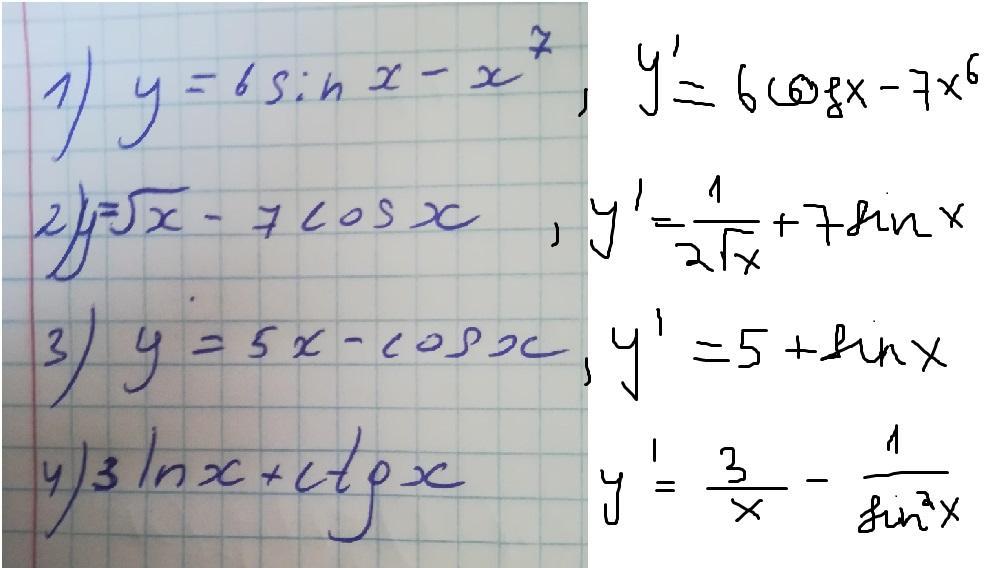 1) y = 6 sin x - x⁷, y' = 6 cos x - 7x⁶
2) y = √x - 7 cos x, y' = 1/(2√x) + 7 sin x
3) y = 5x - cos x, y' = 5 + sin x
4) 3 ln x + ctg x y' = 3/x - 1/(sin²x)